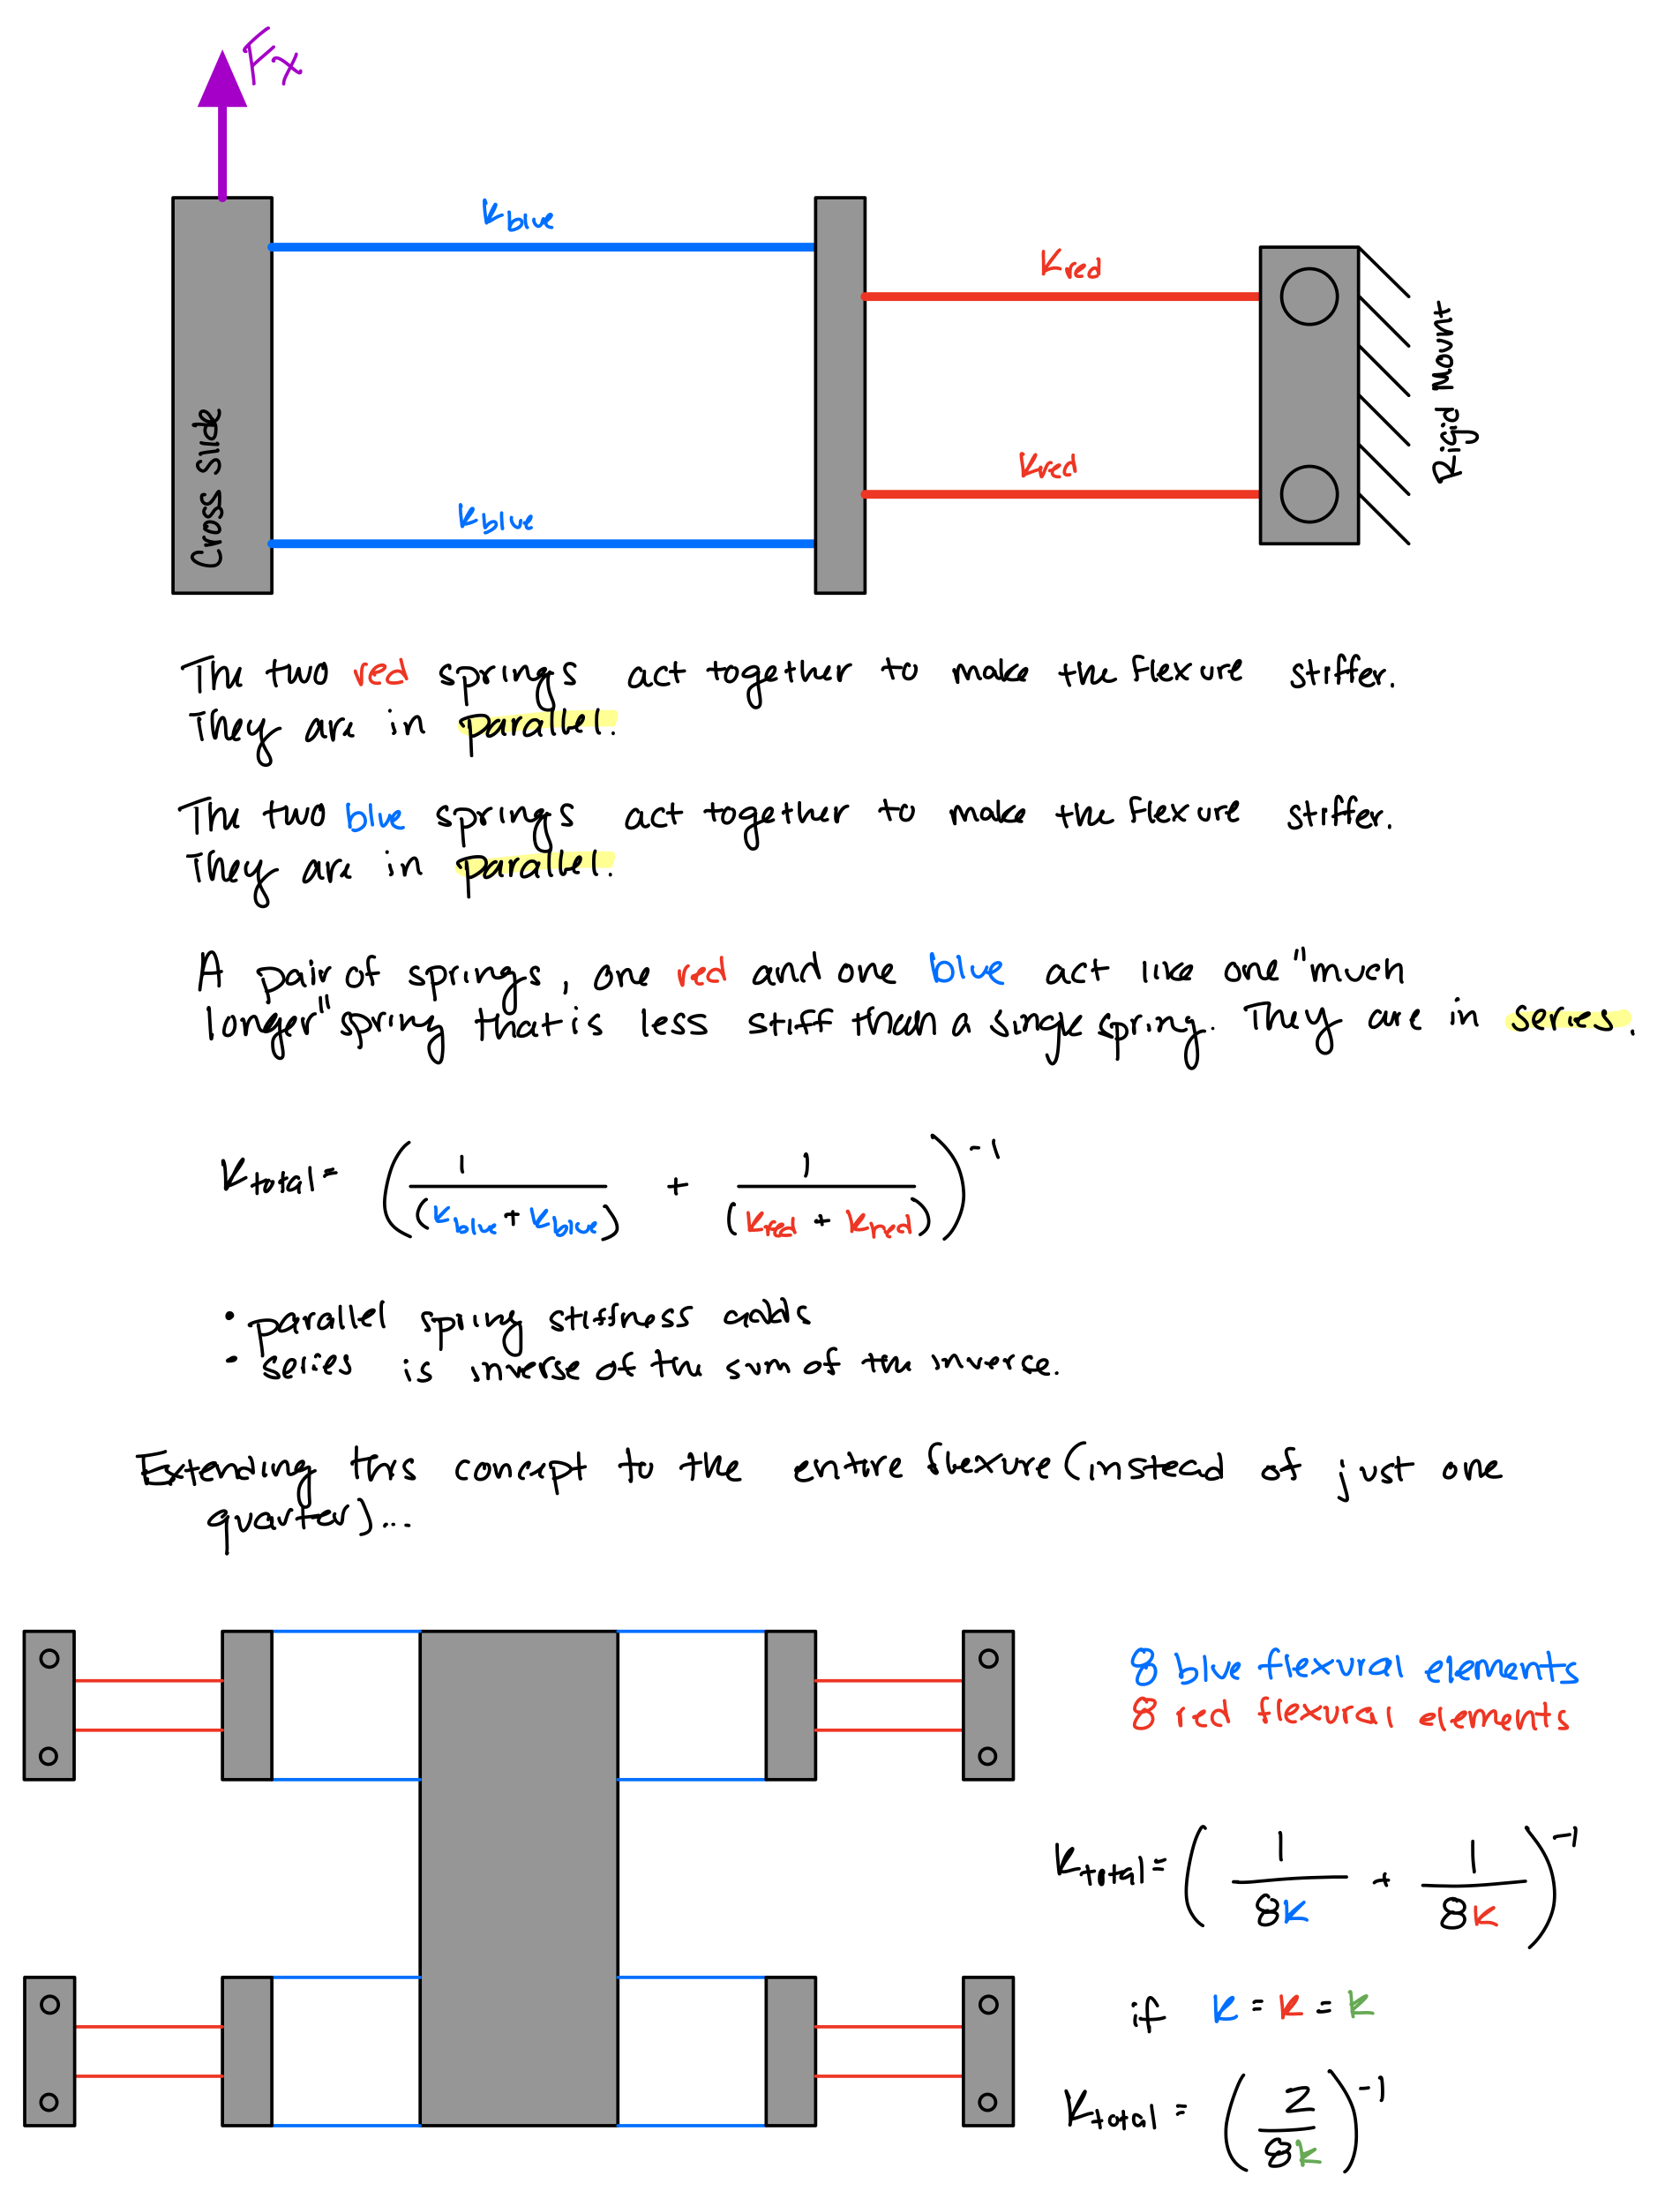 Fx
Kblue
Kred
Cross Slide
Rigid Mount
Kred
Kblue
The two red springs act together to make the flexure stiffer.
They are in parallel.
The two blue springs act together to make the flexure stiffer.
They are in parallel.
A pair of springs, one red and one blue act like one "much
longer" spring that is less stiff than a single spring. They are in series.
Ktotal = (1/(Kblue + Kblue) + 1/(Kred + Kred))^-1
• parallel spring stiffness adds
• series is inverse of the sum of the inverse.
Extending this concept to the entire flexure (instead of just one
quarter)...
8 blue flexural elements
8 red flexural elements
Ktotal = (1/8K + 1/8K)^-1
if K = K = K
Ktotal = (2/8K)^-1